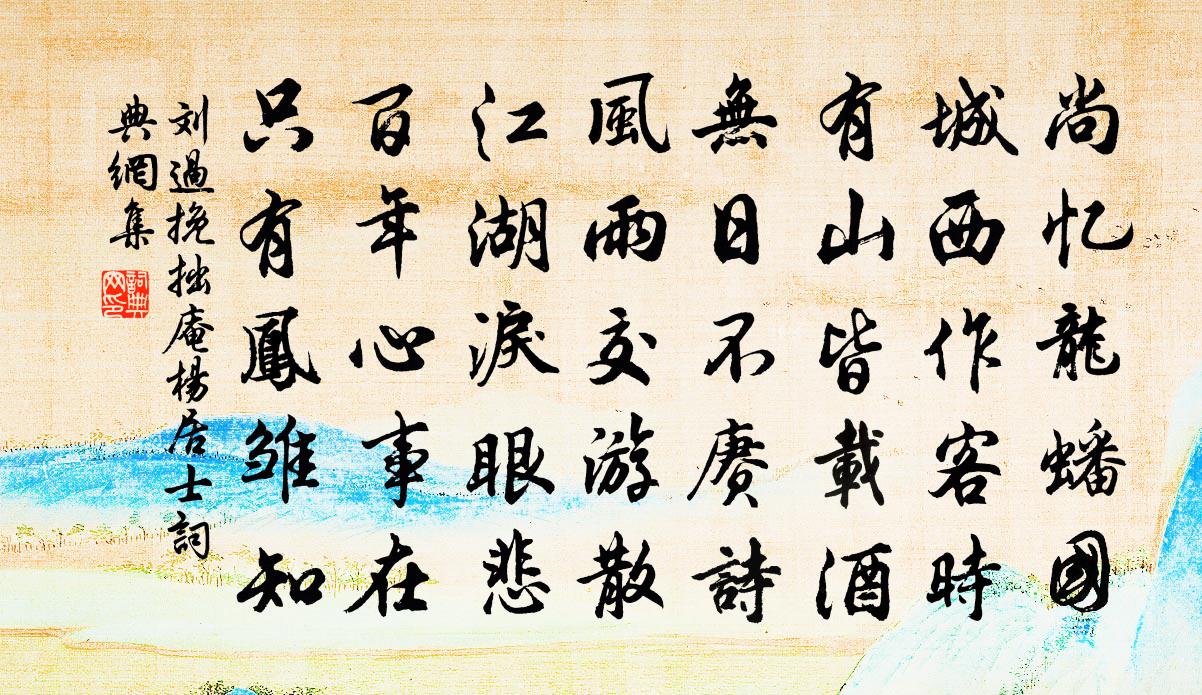 尚忆龍蟠國
城西作客時
有山皆載酒
無日不赓詩
風雨交游散
江湖淚眼悲
百年心事在
只有鳳雏知
刘過挽拙庵楊居士詞
典網集
詞典網印